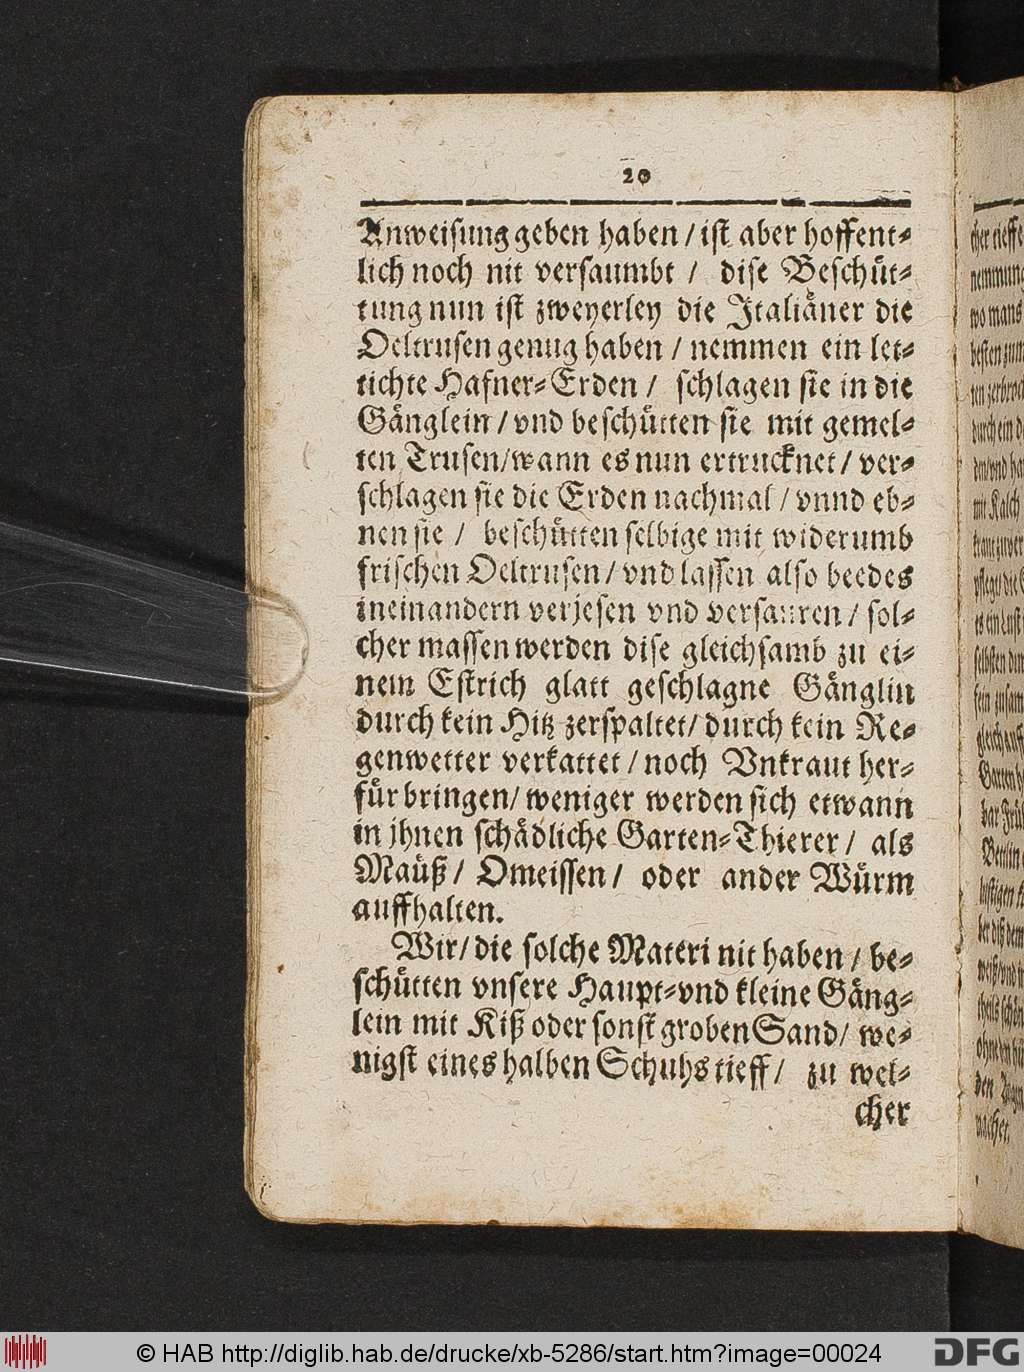 20
Anweisung geben haben / ist aber hoffent-
lich noch nit versaumbt / dise Beschüt-
tung nun ist zweyerley die Italiäner die
Oeltrusen genug haben / nemmen ein let-
tichte Hafner-Erden / schlagen sie in die
Gänglein / vnd beschütten sie mit gemel-
ten Trusen / wann es nun ertrucknet / ver-
schlagen sie die Erden nachmal / vnnd eb-
nen sie / beschütten selbige mit widerumb
frischen Oeltrusen / vnd lassen also beedes
ineinandern verjesen vnd versauren / sol-
cher massen werden dise gleichsamb zu ei-
nem Estrich glatt geschlagne Gänglin
durch kein Hitz zerspaltet / durch kein Re-
genwetter verkattet / noch Vnkraut her-
für bringen / weniger werden sich etwann
in jhnen schädliche Garten-Thierer / als
Mäuß / Omeissen / oder ander Würm
auffhalten.
Wir / die solche Materi nit haben / be-
schütten vnsere Haupt- vnd kleine Gäng-
lein mit Kiß oder sonst groben Sand / we-
nigst eines halben Schuhs tieff / zu wel-
cher
© HAB http://diglib.hab.de/drucke/xb-5286/start.htm?image=00024
DFG